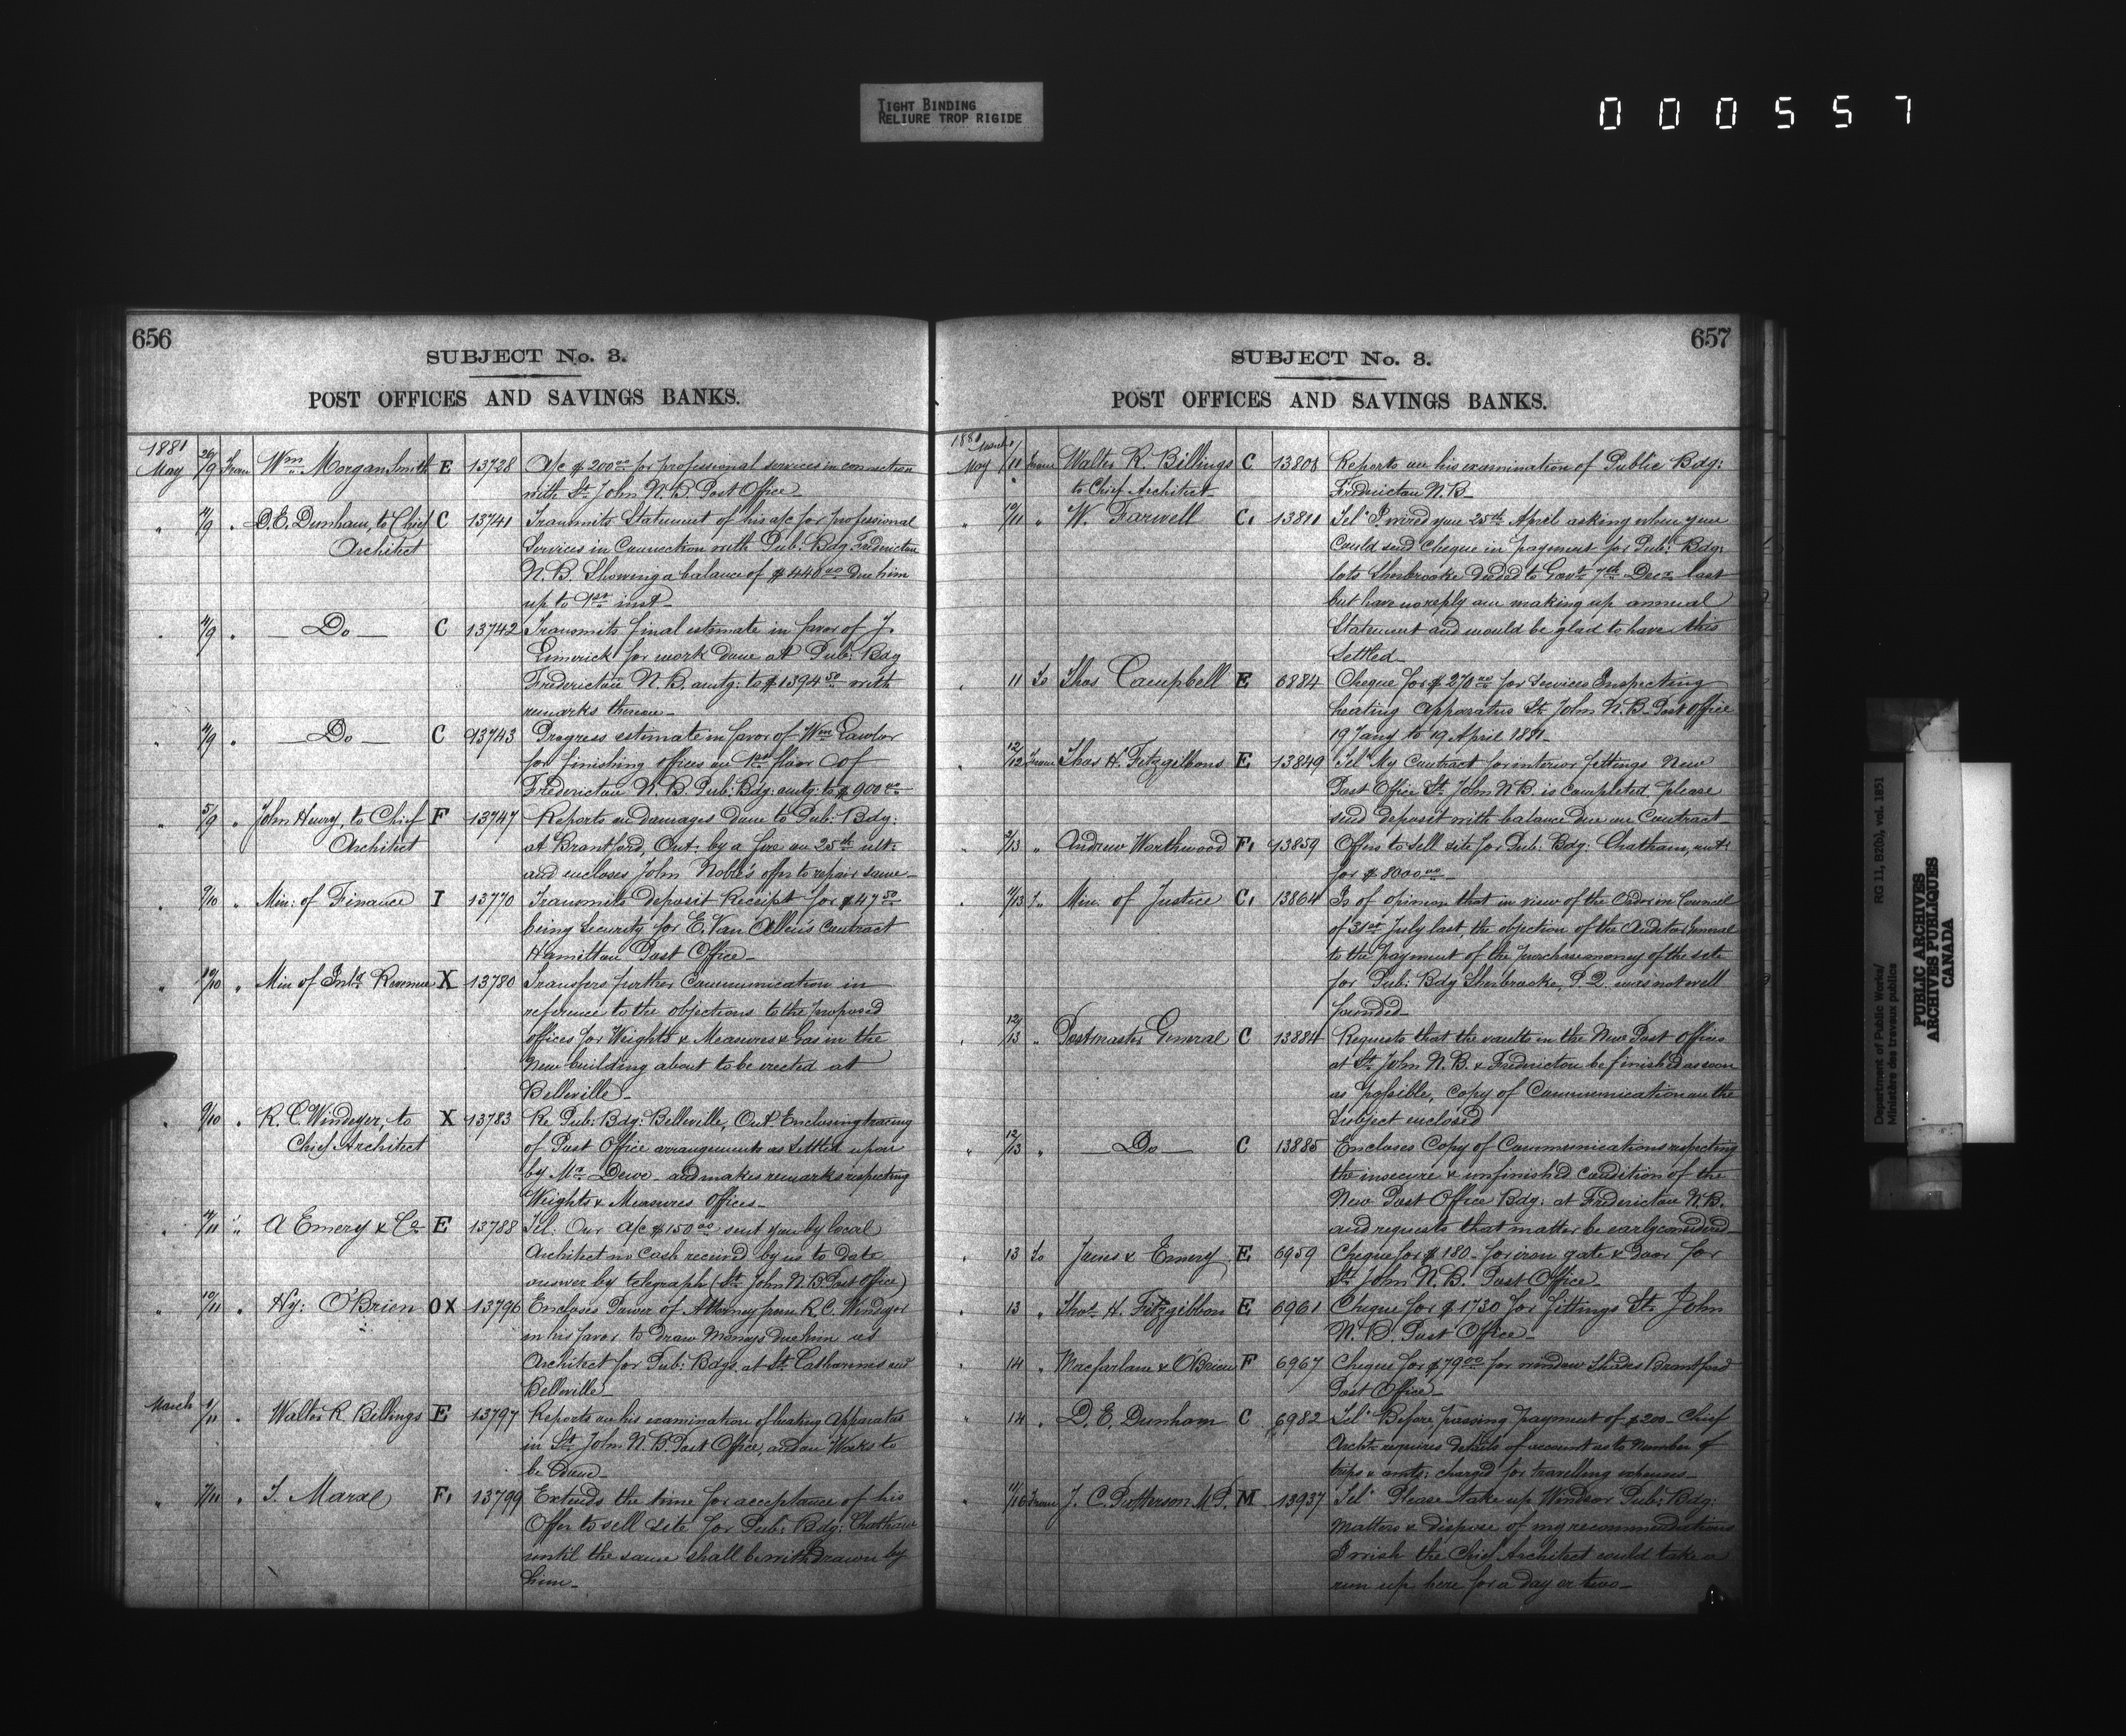 TIGHT BINDING
RELIURE TROP RIGIDE
000557
656
SUBJECT No. 3.
POST OFFICES AND SAVINGS BANKS.
1881
May 26/9 From Wm Morgan Smith E 13728 A/c $200.00 for professional services in connection
with St. John N.B. Post Office
" 4/9 " D.E. Dunham, to Chief C 13741 Transmits Statement of his a/c for professional
Architect Services in Connection with Pub: Bdg Fredericton
N.B. Showing a balance of $440.00 due him
up to 1st inst
" 4/9 " Do C 13742 Transmits final estimate in favor of J.
Limerick for work done at Pub: Bdg
Fredericton N.B. amtg: to $1394.50 with
remarks thereon
" 4/9 " Do C 13743 Progress estimate in favor of Wm Lawlor
for finishing offices on 1st floor of
Fredericton N.B. Pub: Bdg: amtg: to $900.00
" 5/9 " John Henry, to Chief F 13747 Reports on damages done to Pub: Bdg:
Architect at Brantford, Ont. by a fire on 25th ult:
and encloses John Noble's offer to repair same
" 9/10 " Min: of Finance I 13770 Transmits Deposit Receipt for $47.50
being Security for E. Van Allen's Contract
Hamilton Post Office
" 10/10 " Min of Inld Revenue X 13780 Transfers further Communication in
reference to the objections to the proposed
offices for Weights & Measures & Gas in the
New building about to be erected at
Belleville
" 9/10 " R.C. Windeyer, to X 13783 Re Pub: Bdg: Belleville, Ont. Enclosing tracing
Chief Architect of Post Office arrangements as Settled upon
by Mr. Dewe and makes remarks respecting
Weights & Measures Offices
" /11 " A Emery & Co E 13788 Tel: Our a/c $150.00 sent you by local
Architect no cash received by us to date
answer by telegraph (St. John N.B. Post Office)
" 10/11 " Hy: O'Brien OX 13796 Encloses Power of Attorney from R.C. Windeyer
in his favor to draw Moneys due him as
Architect for Pub: Bdgs. at St. Catharines and
Belleville
March 1/11 " Walter R. Billings E 13797 Reports on his examination of heating Apparatus
in St. John N.B. Post Office, and on Works to
be Done
" 7/11 " F. 13799 Extends the time for acceptance of his
Offer to sell Site for Pub: Bdg: Chatham
until the same shall be withdrawn by
him
657
SUBJECT No. 3.
POST OFFICES AND SAVINGS BANKS.
1881 March
May 1/11 From Walter R. Billings C 13808 Reports on his examination of Public Bdg:
to Chief Architect Fredericton N.B.
" 10/11 " W. Farwell C. 13811 Tel: I wired you 25th April asking when you
Could send Cheque in payment for Pub: Bdg:
lots Sherbrooke deeded to Govt. 7th Decr. last
but have no reply am making up annual
Statement and would be glad to have this
Settled
" 11 To Thos Campbell E 6884 Cheque for $270.00 for Services Inspecting
heating Apparatus St. John N.B. Post Office
19 Jany to 19 April 1881
" 12/12 From Thos H. Fitzgibbons E 13849 Tel: My Contract for interior fittings New
Post Office St. John N.B. is Completed please
send deposit with balance Due on Contract
" 3/13 " Andrew Northwood F. 13859 Offers to sell site for Pub: Bdg: Chatham, Ont:
for $8000.00
" 11/13 " Min. of Justice C. 13864 Is of opinion that in view of the Order in Council
of 31st July last, the objection of the Auditor General
to the payment of the purchase money of the site
for Pub: Bdg Sherbrooke, P.Q. was not well
founded
" 12/13 " Postmaster General C 13884 Requests that the vaults in the New Post Offices
at St. John N.B. & Fredericton be finished as soon
as possible, copy of Communication on the
Subject enclosed
" 12/13 " Do C 13885 Encloses Copy of Communications respecting
the insecure & unfinished Condition of the
New Post Office Bdg: at Fredericton N.B.
and requests that matter be early considered
" 13 To & Emery E 6959 Cheque for $180 for iron gate & door for
St. John N.B. Post Office
" 13 " Thos. H. Fitzgibbon E 6961 Cheque for $1730 for fittings St. John
N.B. Post Office
" 14 " Macfarlane & O'Brien F 6967 Cheque for $79.00 for window Shades Brantford
Post Office
" 14 " D.E. Dunham C 6982 Tel: Before passing payment of $200 Chief
Archt. requires details of account as to Number of
trips & amts: charged for travelling expenses
" 11/16 From J.C. Patterson M.P. M 13937 Tel: Please take up Windsor Pub: Bdg:
matters & dispose of my recommendations
I wish the Chief Architect could take a
run up here for a day or two
Department of Public Works/ RG 11, B2(b), vol. 1851
Ministère des travaux publics
PUBLIC ARCHIVES
ARCHIVES PUBLIQUES
CANADA